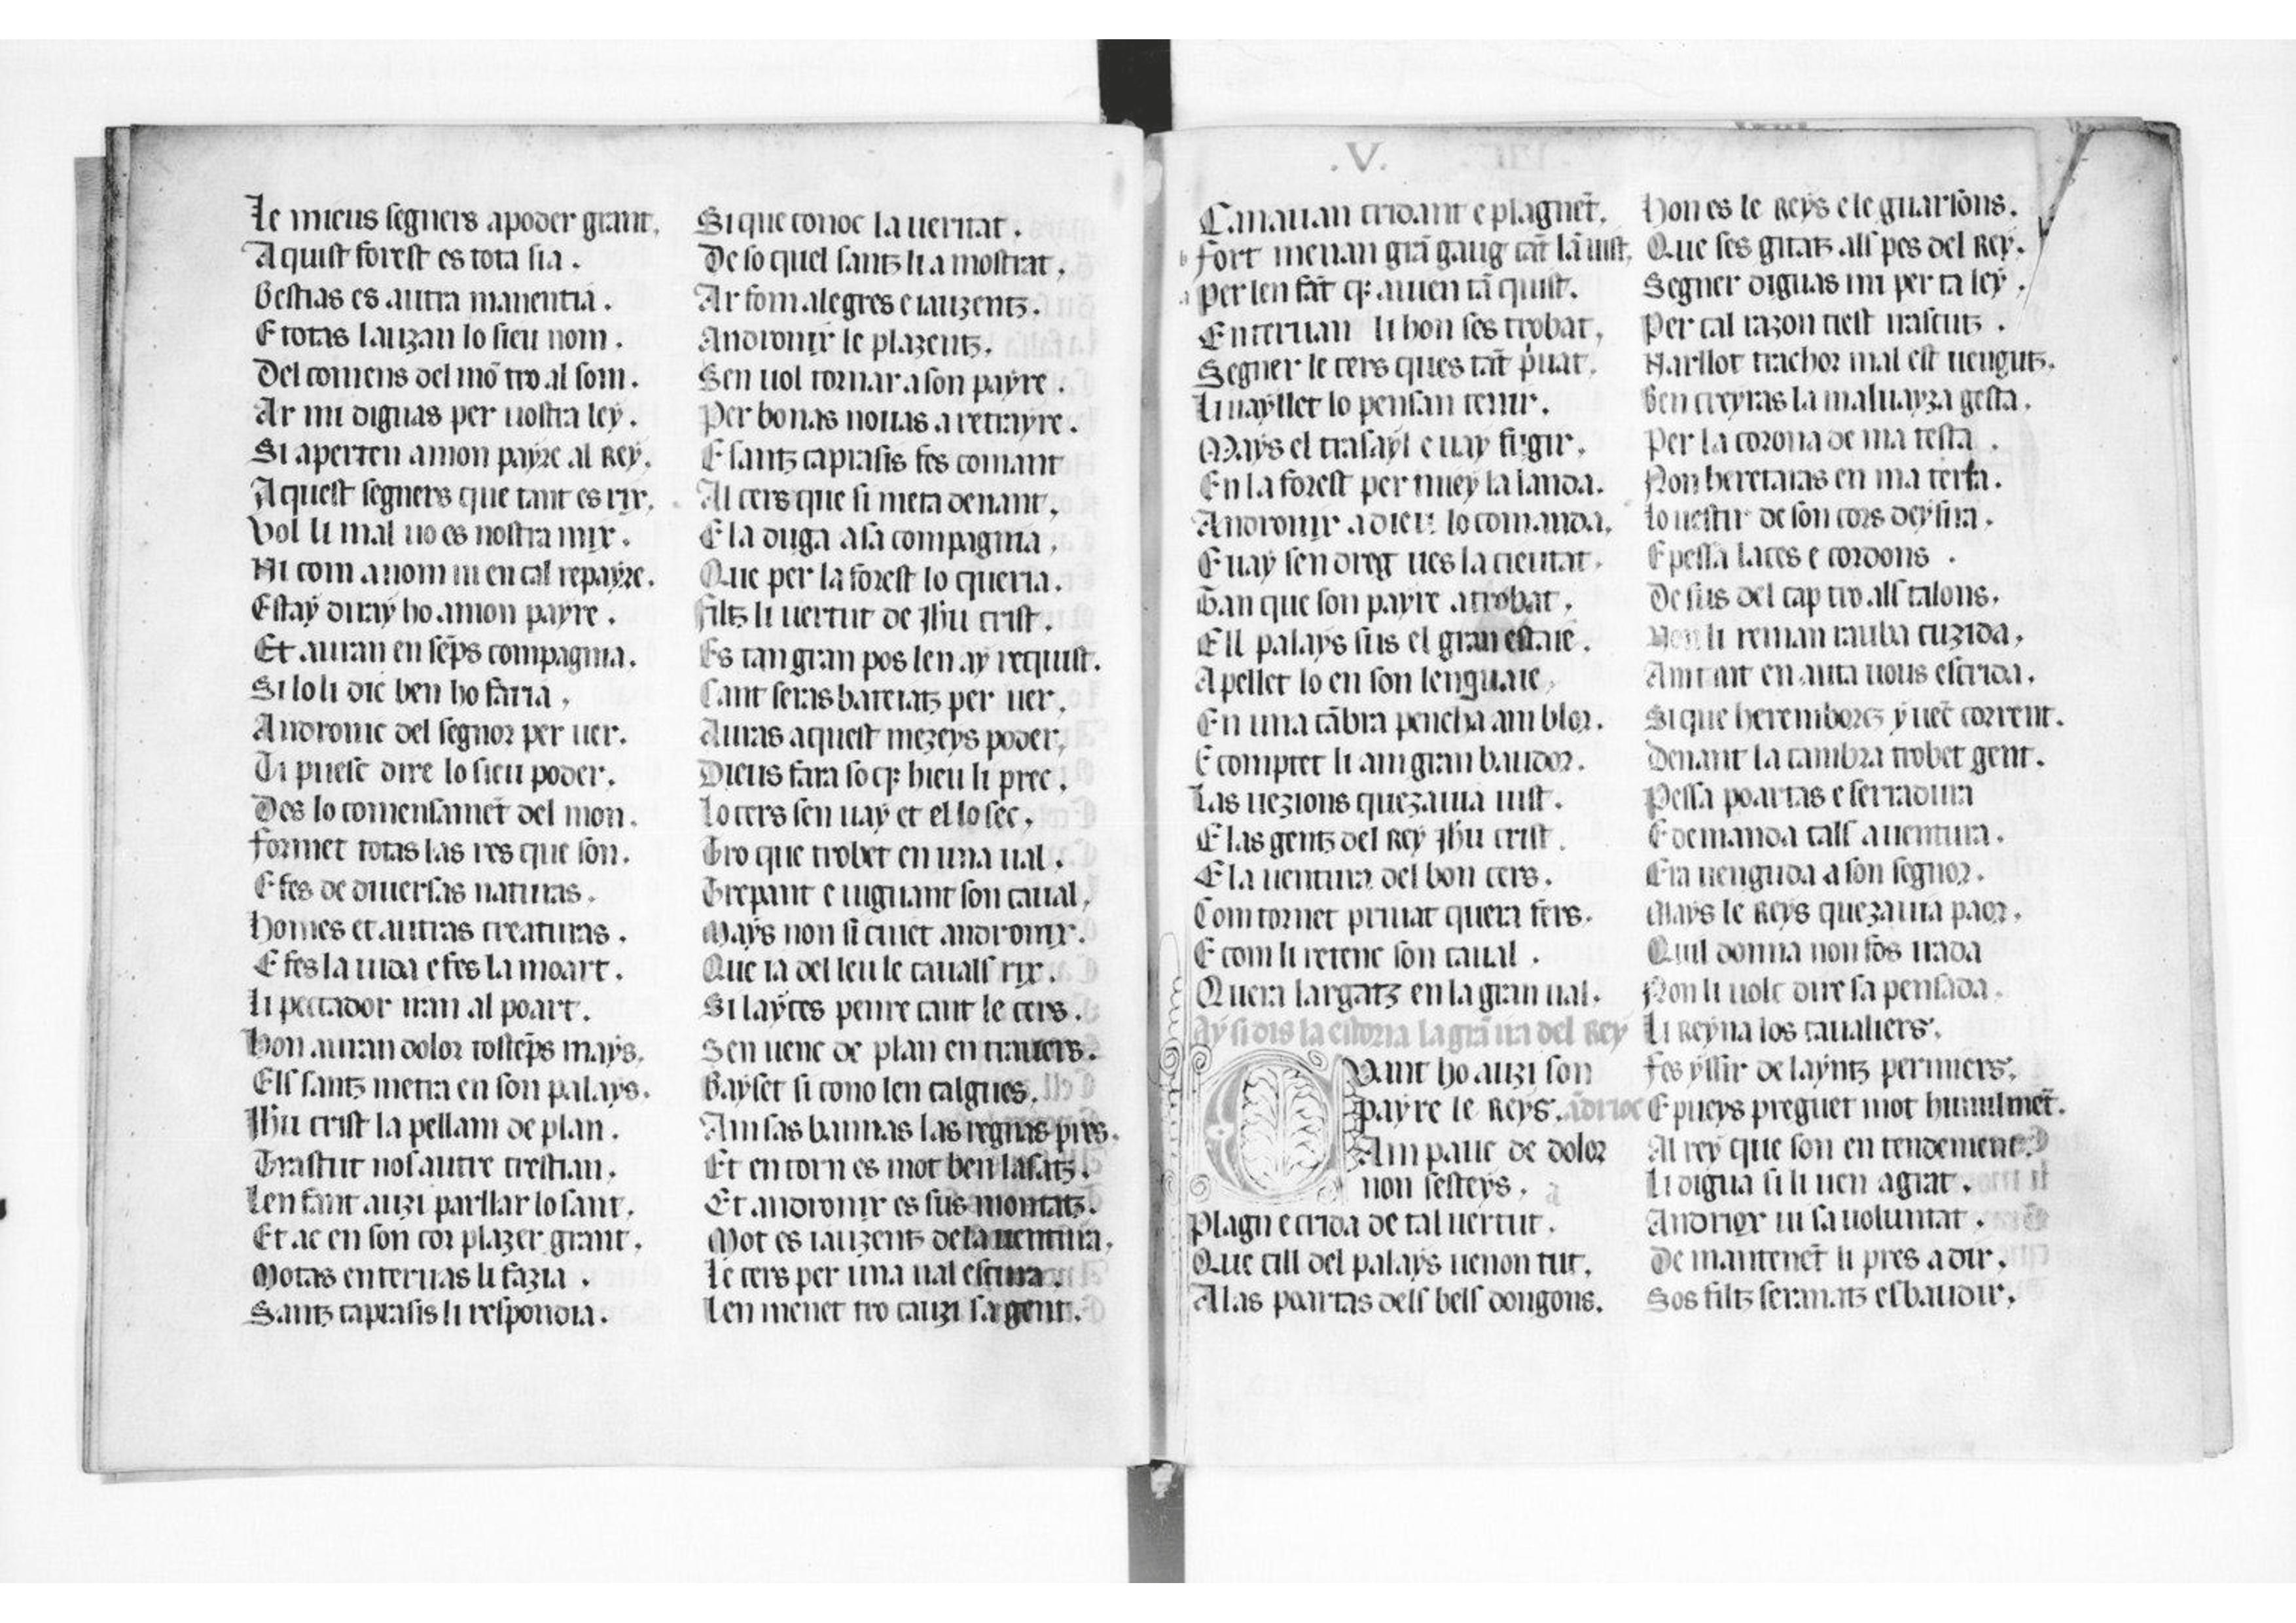 Le mieus segners a poder grant.
Aquist forest es tota sia.
Bestias es autra manentia.
E totas lauzan lo sieu nom.
Del comens del mō tro al som.
Ar mi diguas per uostra ley.
Si aperten a mon payre al Rey.
Aquest segners que tant es rix.
Vol li mal no es nostra mix.
Ni com a nom ni en cal repayre.
Estay diray ho a mon payre.
Et auran en sēps compagnia.
Si lo li dic ben ho faria.
Andronic del segnor per uer.
Ti puesc dire lo sieu poder.
Des lo comensamēt del mon.
Formet totas las res que son.
E fes de diuersas naturas.
Homes et autras creaturas.
E fes la uida e fes la moart.
Li peccador iran al poart.
Hon auran dolor tostēps mays.
Els santz metra en son palays.
Jhū crist la pellam de plan.
Trastut nos autre crestian.
Len fant auzi parllar lo sant.
Et ac en son cor plazer grant.
Motas enteruas li fazia.
Santz caprasis li respondia.
Si que conoc la ueritat.
De so quel santz li a mostrat.
Ar fom alegres e iauzentz.
Andronix le plazentz.
Sen uol tornar a son payre.
Per bonas nouas a retrayre.
E santz caprasis fes comant
Al cers que si meta denant.
E la duga a sa compagnia.
Que per la forest lo queria.
Filtz li uertut de Jhū crist.
Es tan gran pos len ay requist.
Cant seras bateiatz per uer.
Auras aquest mezeys poder.
Dieus fara so qͥ hieu li prec.
Lo cers sen uay et el lo sec.
Tro que trobet en una ual.
Trepant e uiguant son caual.
Mays non si cuiet andronix.
Que ia del leu le cauals rix.
Si layces penre tant le cers.
Sen uenc de plan en trauers.
Bayset si cono len calgues.
Am sas bannas las regnas pres.
Et en torn es mot ben lasatz.
Et andronix es sus montatz.
Mot es iauzentz de la uentura.
Le cers per una ual escura.
Len menet tro cauzi sa gent.
.V.
Canauan cridant e plagnēt.
Fort menan grā gaug cāt lā uist.
Per len fāt qͥ auien tā quist.
Enteruan li hon ses trobat.
Segner le cers ques tāt priuat.
Li uayllet lo pensan tenir.
Mays el trasayl e uay fugir.
En la forest per miey la landa.
Andronix a dieu lo comanda.
E uay sen dreg ues la cieutat.
Tan que son payre a trobat.
Ell palays sus el gran estaie.
Apellet lo en son lenguaie.
En una cābra pencha am blor.
E comptet li am gran baudor.
Las uezions quez auia uist.
E las gentz del Rey Jhū crist.
E la uentura del bon cers.
Com tornet priuat quera fers.
E com li retenc son caual.
Quera largatz en la gran ual.
Ay si dis la estoria la grā ira del Rey
Quant ho auzi son
payre le Reys. ādrioc
Am pauc de dolor
non festeys.
Plagn e crida de tal uertut.
Que cill del palays uenon tut.
A las poartas dels bels dongons.
Hon es le Reys e le guarsōns.
Que ses gitatz als pes del Rey.
Segner diguas mi per ta ley.
Per cal razon tiest uascutz.
Harllot trachor mal est uengutz.
Ben creyras la maluayza gesta.
Per la corona de ma testa.
Non heretaras en ma terra.
Lo uestir de son cors deysira.
E pessa laces e cordons.
De sus del cap tro als talons.
Non li reman rauba cuzida.
Amtant en auta uous escrida.
Si que heremborcs y uēc corrent.
Denant la cambra trobet gent.
Pessa poartas e serradura
E demanda cals auentura.
Era uenguda a son segnor.
Mays le Reys quez auia paor.
Quil donna non fōs irada
Non li uolc dire sa pensada.
Li Reyna los caualiers.
Fes yssir de layntz perimers.
E pueys preguet mot humilmēt.
Al rey que son en tendement.
Li digua si li uen agrat.
Andriox ni sa uoluntat.
De mantenēt li pres a dir.
Sos filtz seranatz esbaudir.